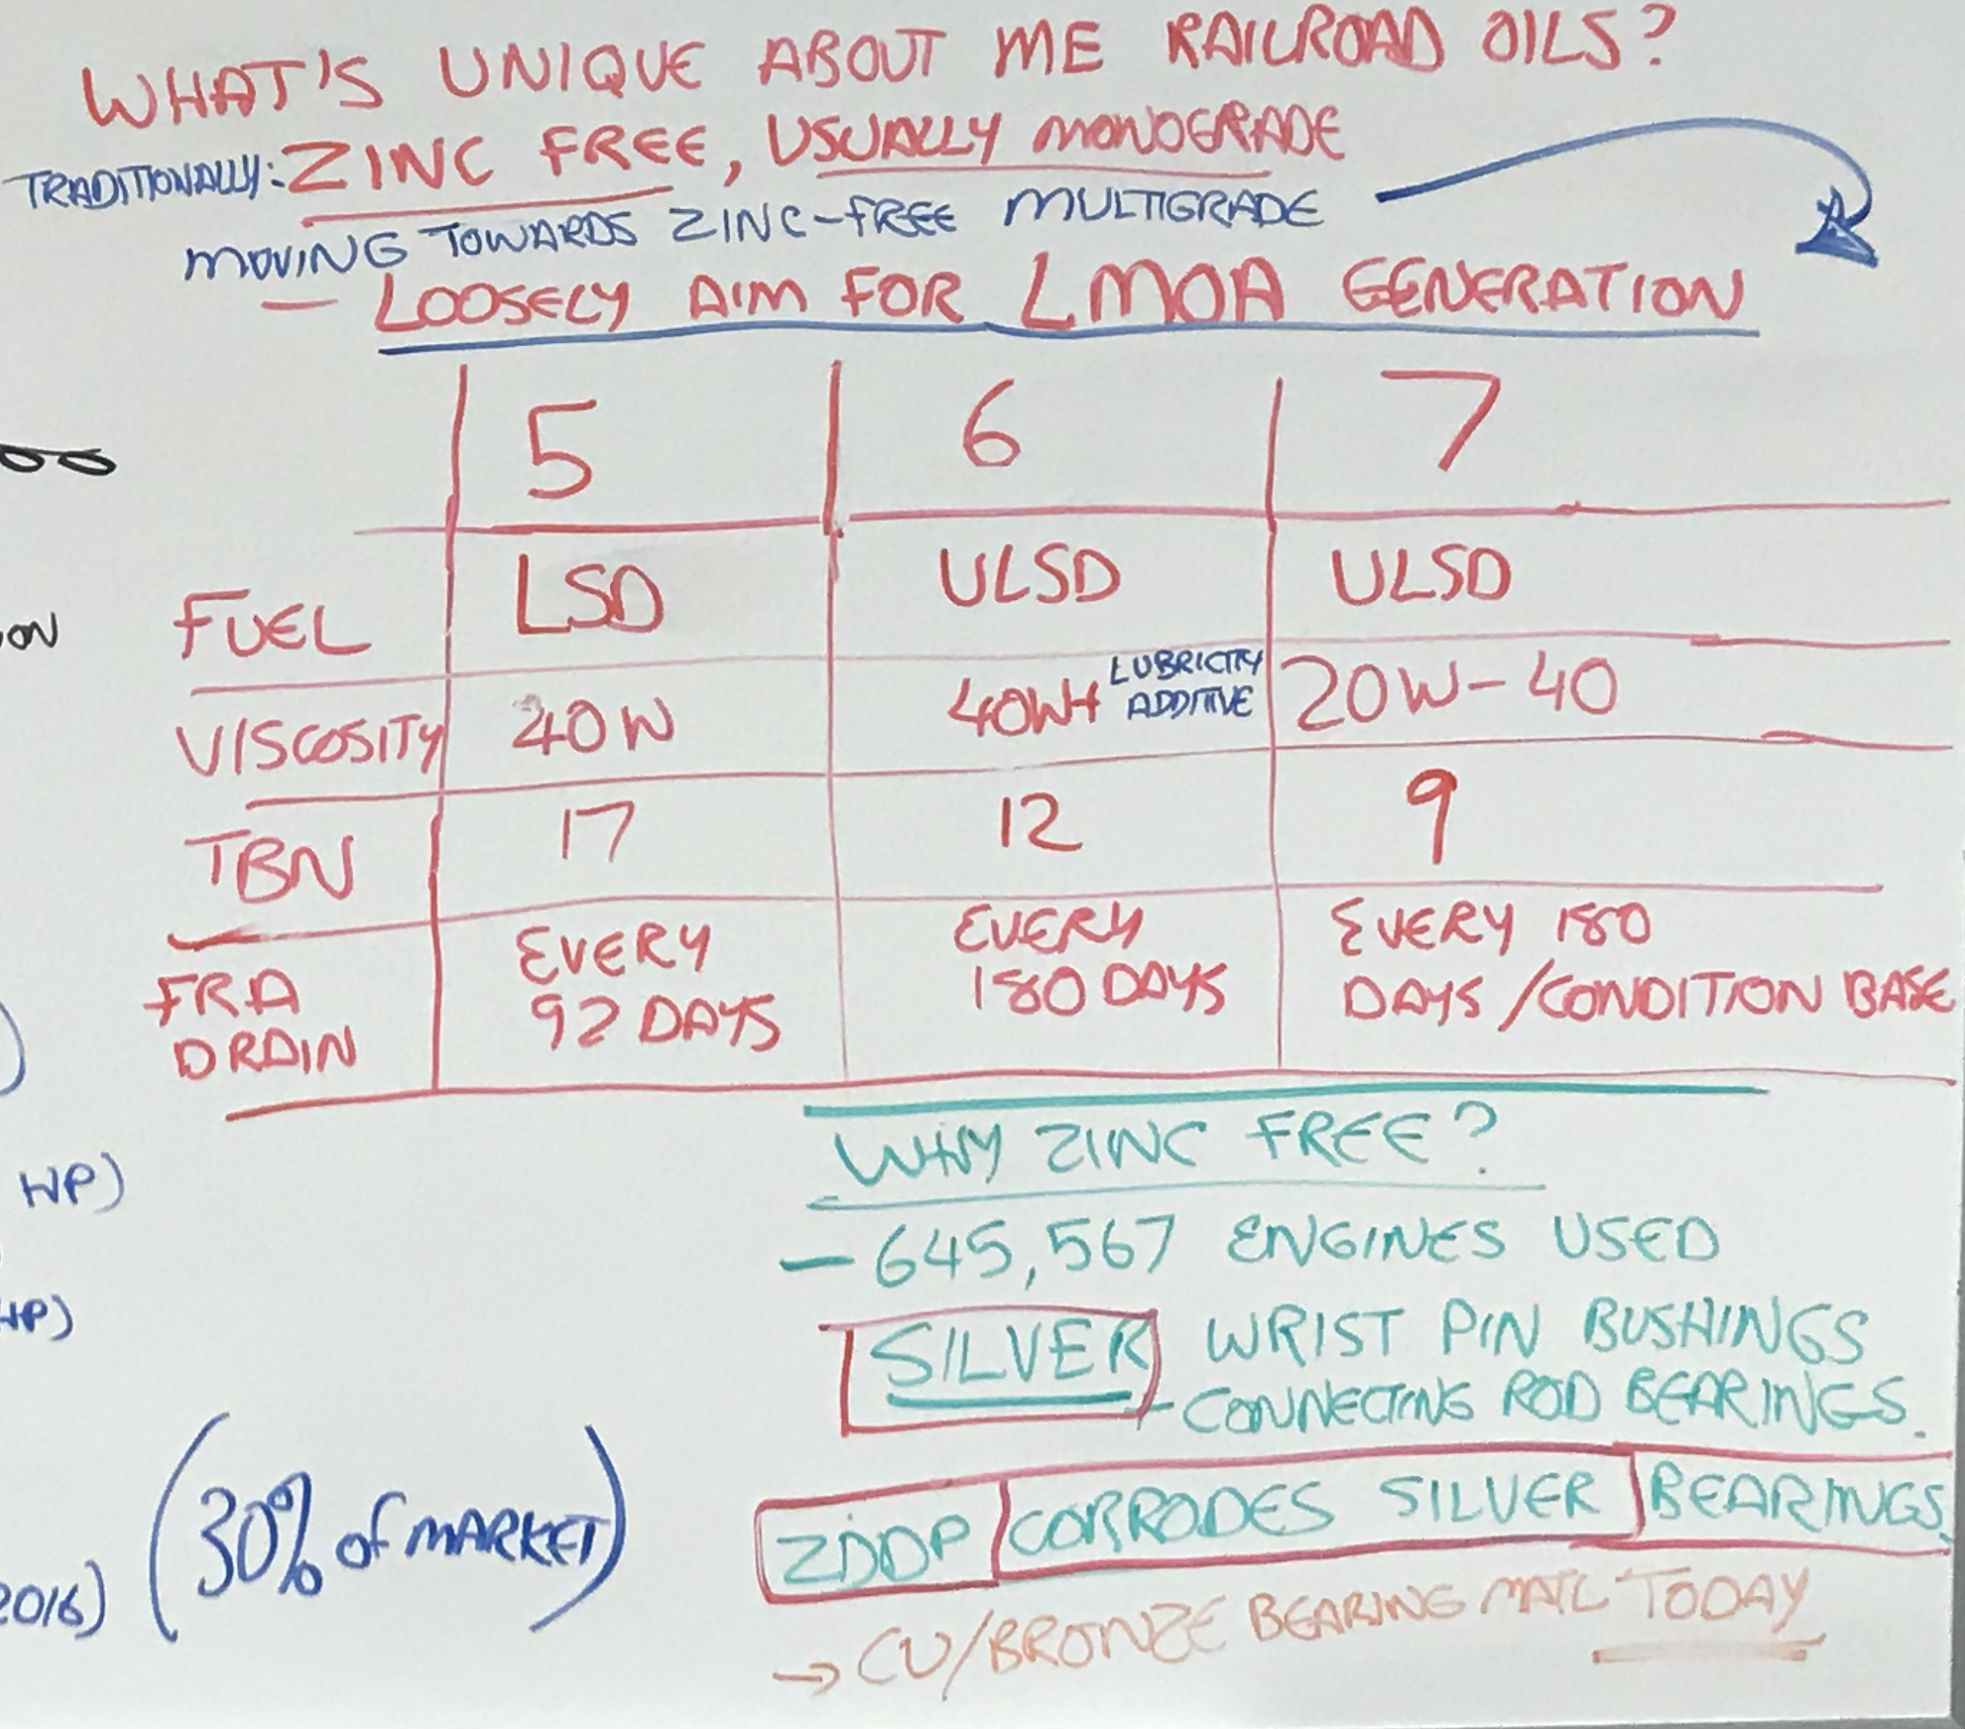 WHAT'S UNIQUE ABOUT ME RAILROAD OILS?
TRADITIONALLY: ZINC FREE, USUALLY MONOGRADE
MOVING TOWARDS ZINC-FREE MULTIGRADE
— LOOSELY AIM FOR LMOA GENERATION
5 6 7
FUEL LSD ULSD ULSD
VISCOSITY 40W 40W+ LUBRICITY ADDITIVE 20W-40
TBN 17 12 9
FRA DRAIN EVERY 92 DAYS EVERY 180 DAYS EVERY 180 DAYS/CONDITION BASE
ON
WHY ZINC FREE?
HP)
— 645, 567 ENGINES USED
HP)
SILVER WRIST PIN BUSHINGS
+ CONNECTING ROD BEARINGS.
(30% of MARKET)
ZDDP CORRODES SILVER BEARINGS.
2016)
→ CU/BRONZE BEARING MATL TODAY